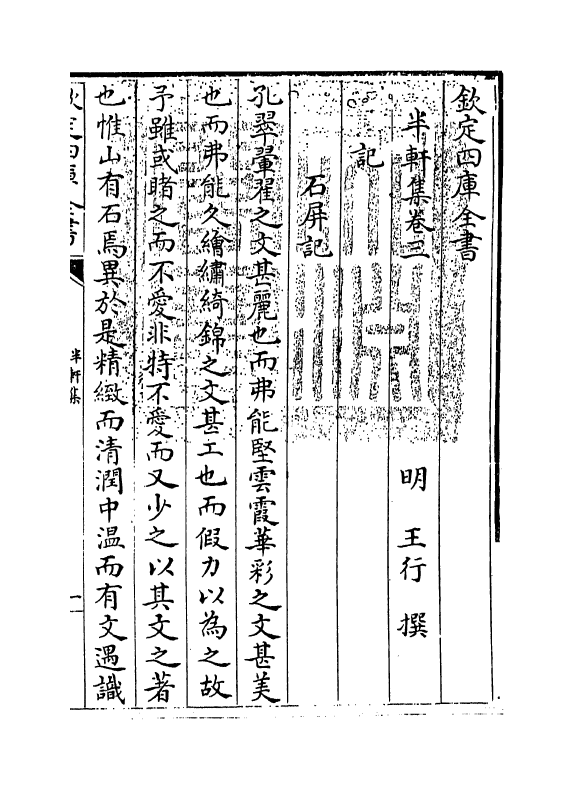 欽定四庫全書
半軒集卷三
明 王行 撰
記
石屏記
孔翠翬翟之文甚麗也而弗能堅雲霞華彩之文甚美
也而弗能久繪繡綺錦之文甚工也而假力以為之故
予雖或睹之而不愛非特不愛而又少之以其文之著
也惟山有石焉異於是精緻而清潤中溫而有文遇識
欽定四庫全書
半軒集
一